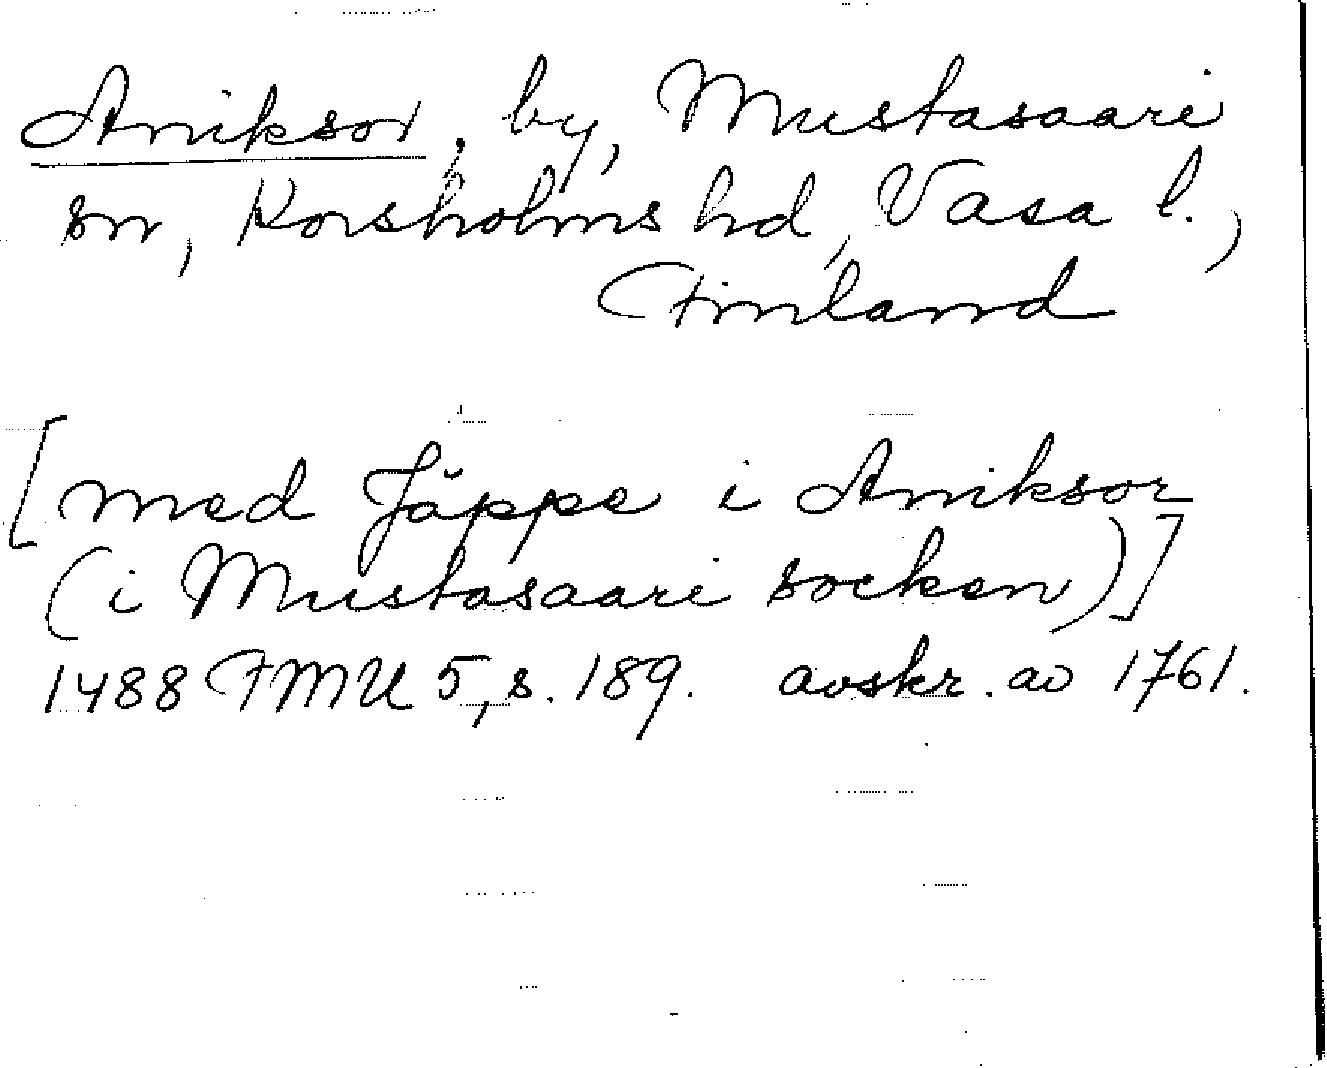 Aniksor, by, Mustasaari
sn, Korsholms hd, Vasa l.,
Finland
[med Jäppe i Aniksor
(i Mustasaari socken)]
1488 FMU 5, s. 189. avskr. av 1761.